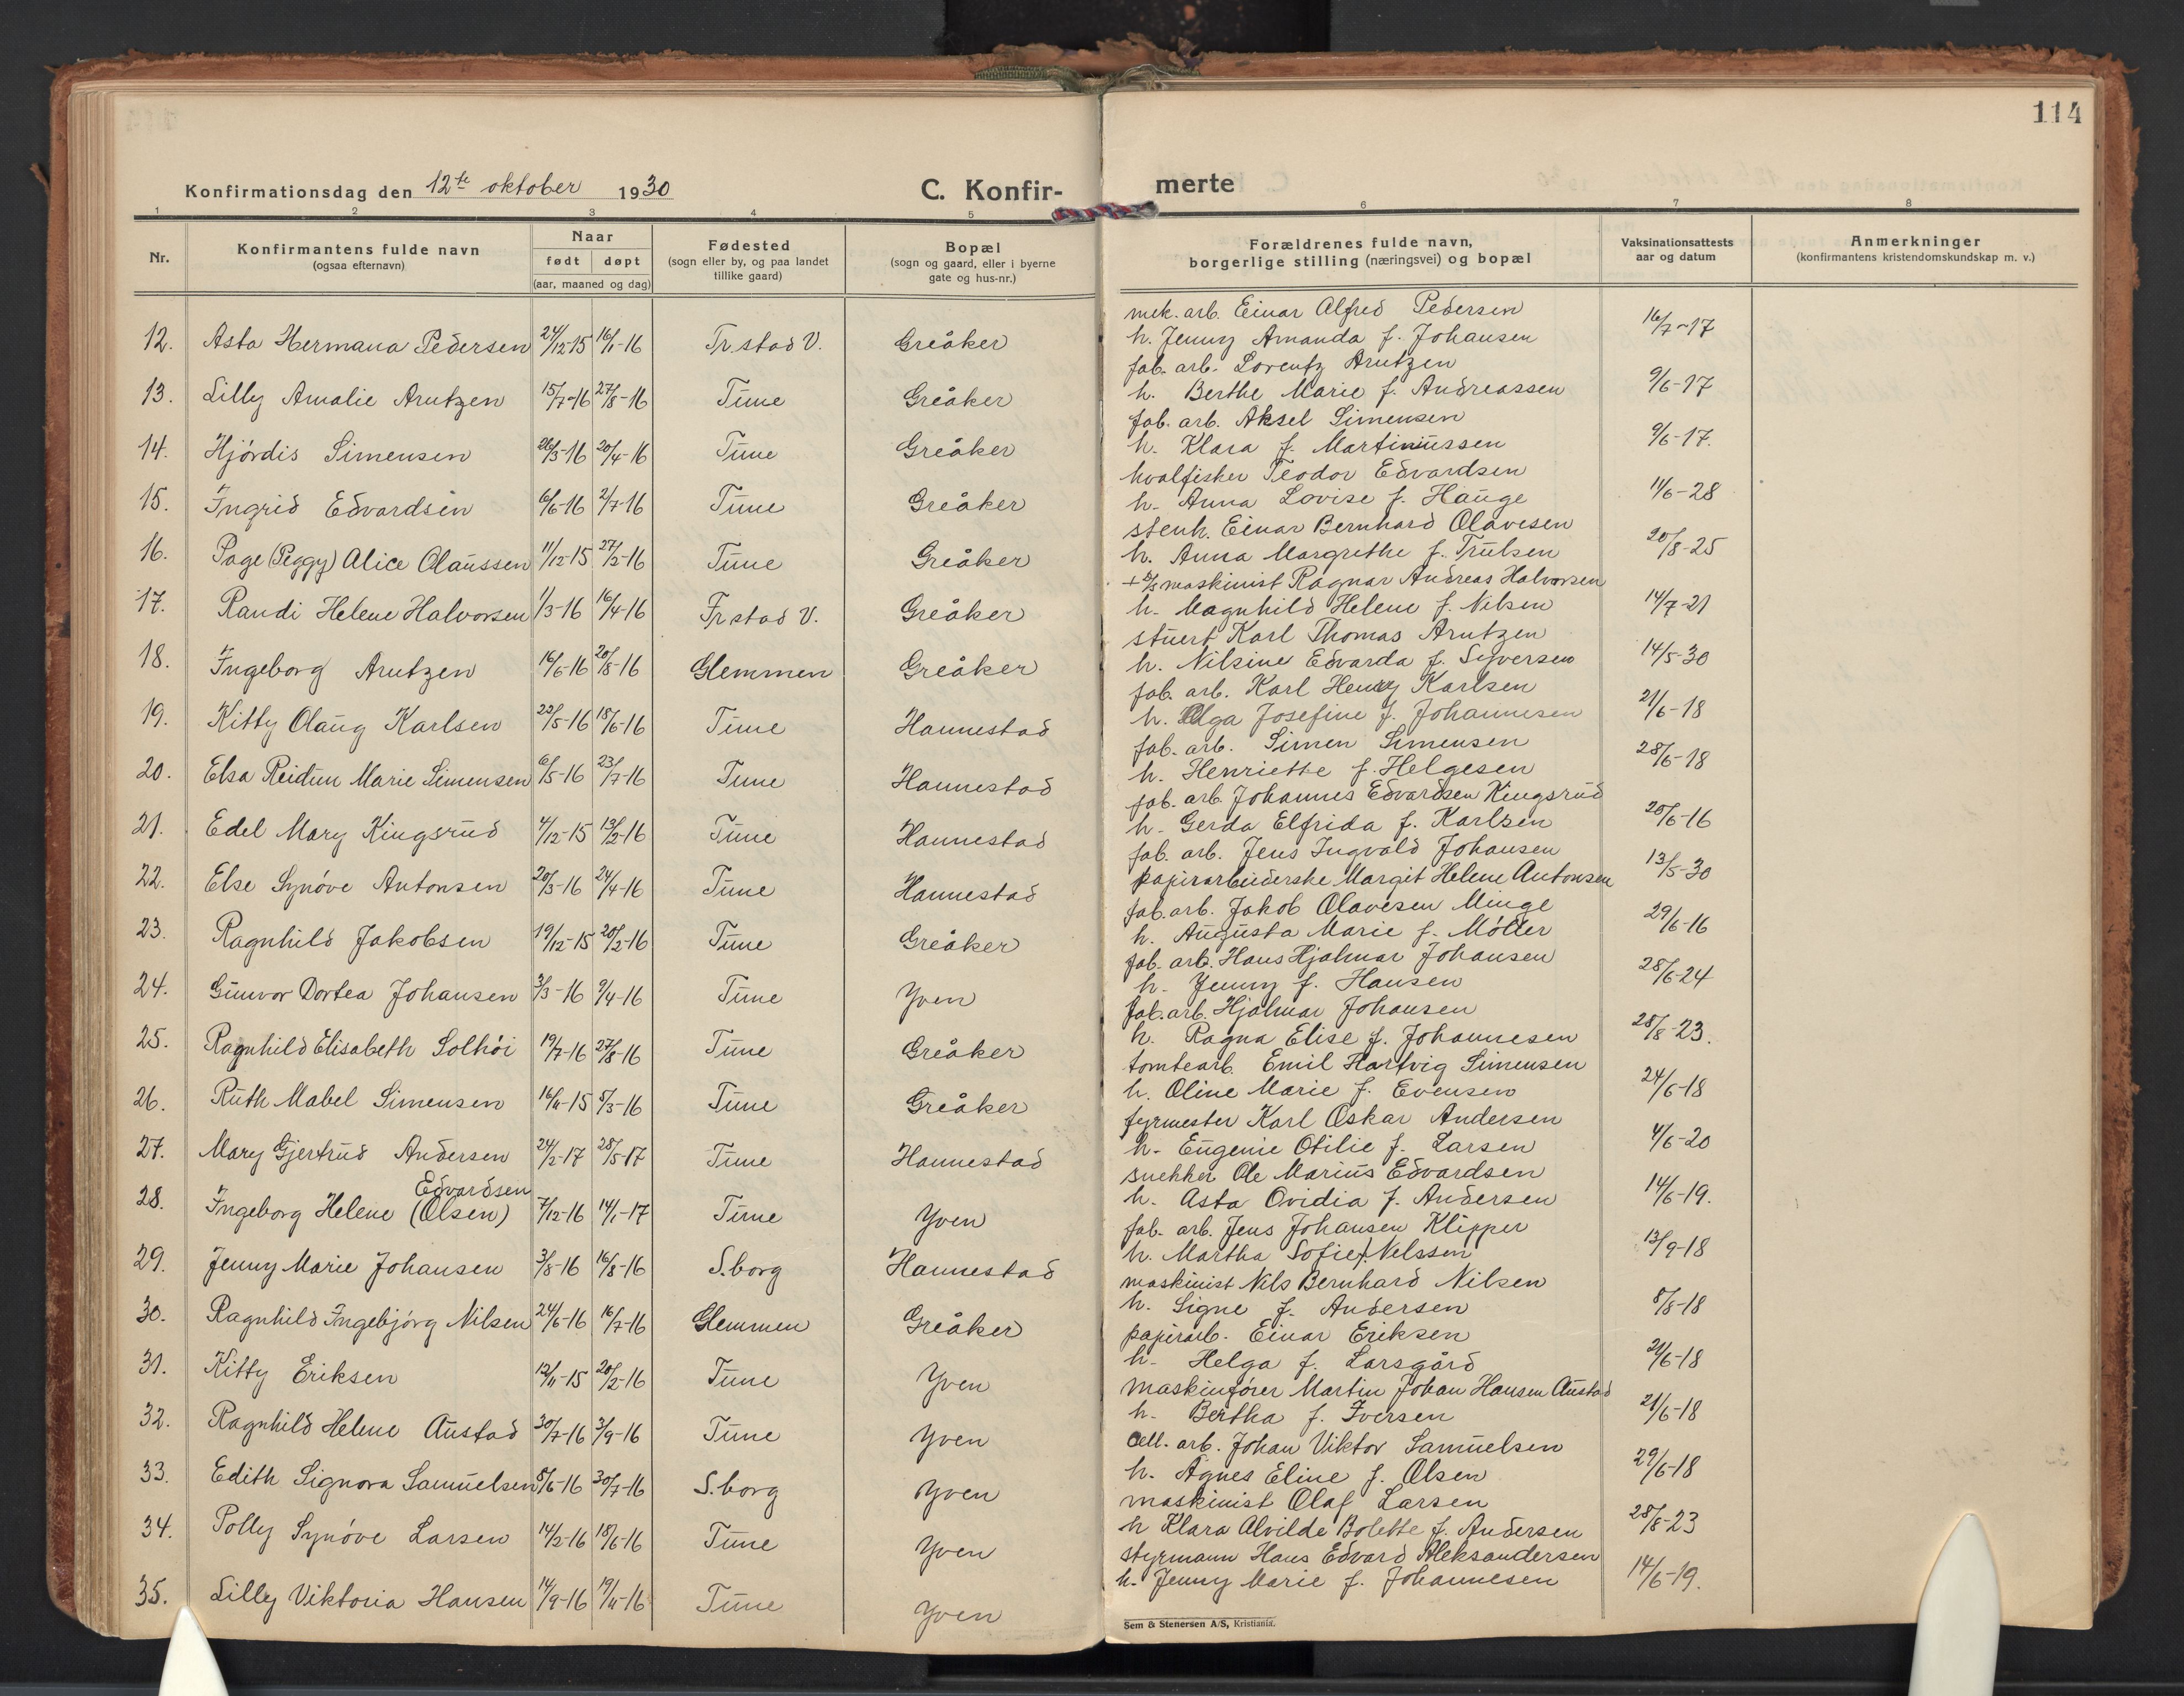 114
Konfirmationsdag den 12te oktober 1930
C. Konfir-
merte
1 2 3 4 5 6 7 8
Nr.
Konfirmantens fulde navn
(ogsaa efternavn)
Naar
født døpt
(aar, maaned og dag)
Fødested
(sogn eller by, og paa landet
tillike gaard)
Bopæl
(sogn og gaard, eller i byerne
gate og hus-nr.)
Forældrenes fulde navn,
borgerlige stilling (næringsvei) og bopæl
Vaksinationsattests
aar og datum
Anmerkninger
(konfirmantens kristendomskundskap m. v.)
12. Asta Hermana Pedersen 24/12-15 16/1-16 Fr.stad V. Greåker
mek. arb. Einar Alfred Pedersen
h. Jenny Amanda f. Johansen 16/7-17
13. Lilly Amalie Arntzen 15/7-16 27/8-16 Tune Greåker
fab. arb. Lorentz Arntzen
h. Berthe Marie f. Andreassen 9/6-17
14. Hjórdis Simensen 26/3-16 20/4-16 Tune Greåker
fab. arb. Aksel Simensen
h. Klara f. Martiniussen 9/6-17.
15. Ingrid Edvardsen 6/6-16 2/7-16 Tune Greåker
hvalfisker Teodor Edvardsen
h. Anna Lovise f. Hauge 11/6-28
16. Page (Peggy) Alice Olaussen 11/12-15 27/2-16 Tune Greåker
stenh. Einar Bernhard Olavesen
h. Anna Margrethe f. Trulsen 20/8-25
17. Randi Helene Halvorsen 1/3-16 16/4-16 Fr.stad V. Greåker
maskinist Ragnar Andreas Halvorsen
h. Magnhild Helene f. Nilsen 14/7-21
18. Ingeborg Arntzen 16/6-16 20/8-16 Glemmen Greåker
stuert Karl Thomas Arntzen
h. Nilsine Edvarda f. Syversen 14/5-30
19. Kitty Olaug Karlsen 22/5-16 18/6-16 Tune Hannestad
fab. arb. Karl Henry Karlsen
h. Olga Josefine f. Johannesen 21/6-18
20. Elsa Reidun Marie Simensen 6/5-16 23/7-16 Tune Hannestad
fab. arb. Simen Simensen
h. Henriette f. Helgesen 28/6-18
21. Edel Mary Kingsrud 4/12-15 13/2-16 Tune Hannestad
fab. arb. Johannes Edvardsen Kingsrud
h. Gerda Elfrida f. Karlsen 20/6-16
22. Else Synóve Antonsen 20/3-16 24/4-16 Tune Hannestad
fab. arb. Jens Ingvald Johansen
papirarbeiderske Margit Helene Antonsen 13/5-30
23. Ragnhild Jakobsen 19/12-15 20/2-16 Tune Greåker
fab. arb. Jakob Olavesen Minge
h. Augusta Marie f. Móller 29/6-16
24. Gunvor Dortea Johansen 3/3-16 9/4-16 Tune Yven
fab. arb. Hans Hjalmar Johansen
h. Jenny f. Hansen 28/6-24
25. Ragnhild Elisabeth Solhói 19/7-16 27/8-16 Tune Greåker
fab. arb. Hjalmar Johansen
h. Ragna Elise f. Johannesen 28/8-23.
26. Ruth Mabel Simensen 16/11-15 5/3-16 Tune Greåker
tomtearb. Emil Hartvig Simensen
h. Oline Marie f. Evensen 24/6-18
27. Mary Gjertrud Andersen 24/2-17 28/5-17 Tune Hannestad
fyrmester Karl Oskar Andersen
h. Eugenie Otilie f. Larsen 4/6-20
Edvardsen
28. Ingeborg Helene (Olsen) 7/12-16 14/1-17 Tune Yven
snekker Ole Marius Edvardsen
h. Asta Ovidia f. Andersen 14/6-19.
29. Jenny Marie Johansen 3/8-16 16/8-16 S.borg Hannestad
fab. arb. Jens Johansen Klipper
h. Martha Sofie f. Nelssen 13/9-18
30. Ragnhild Ingebjórg Nilsen 24/6-16 16/7-16 Glemmen Greåker
maskinist Nils Bernhard Nilsen
h. Signe f. Andersen 8/8-18
31. Kitty Eriksen 12/11-15 20/2-16 Tune Yven
papirarb. Einar Eriksen
h. Helga f. Larsgård 21/6-18
32. Ragnhild Helene Austad 30/7-16 3/9-16 Tune Yven
maskinfórer Martin Johan Hansen Austad
h. Bertha f. Iversen 21/6-18
33. Edith Signora Samuelsen 8/6-16 30/7-16 S.borg Yven
cell. arb. Johan Viktor Samuelsen
h. Agnes Eline f. Olsen 29/6-18
34. Polly Synóve Larsen 14/2-16 18/6-16 Tune Yven
maskinist Olaf Larsen
h Klara Alvilde Bolette f. Andersen 28/8-23
35. Lilly Viktoria Hansen 14/9-16 19/11-16 Tune Yven
styrmann Hans Edvard Aleksandersen
h. Jenny Marie f. Johannesen 14/6-19.
Sem & Stenersen A/S, Kristiania.